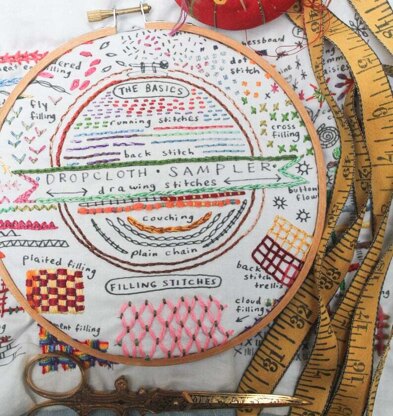 THE BASICS
filling
nessboard
dot
stitch
fly
filling
running stitches
cross
filling
back stitch
DROPCLOTH · SAMPLER
drawing stitches
button
flow
couching
plain chain
plaited filling
back
stitch
trellis
FILLING STITCHES
cloud
filling
filling